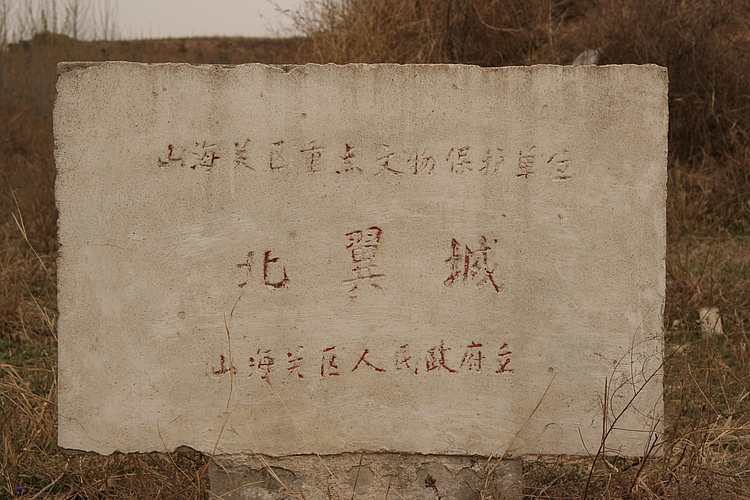 山海关区重点文物保护单位
北翼城
山海关区人民政府立